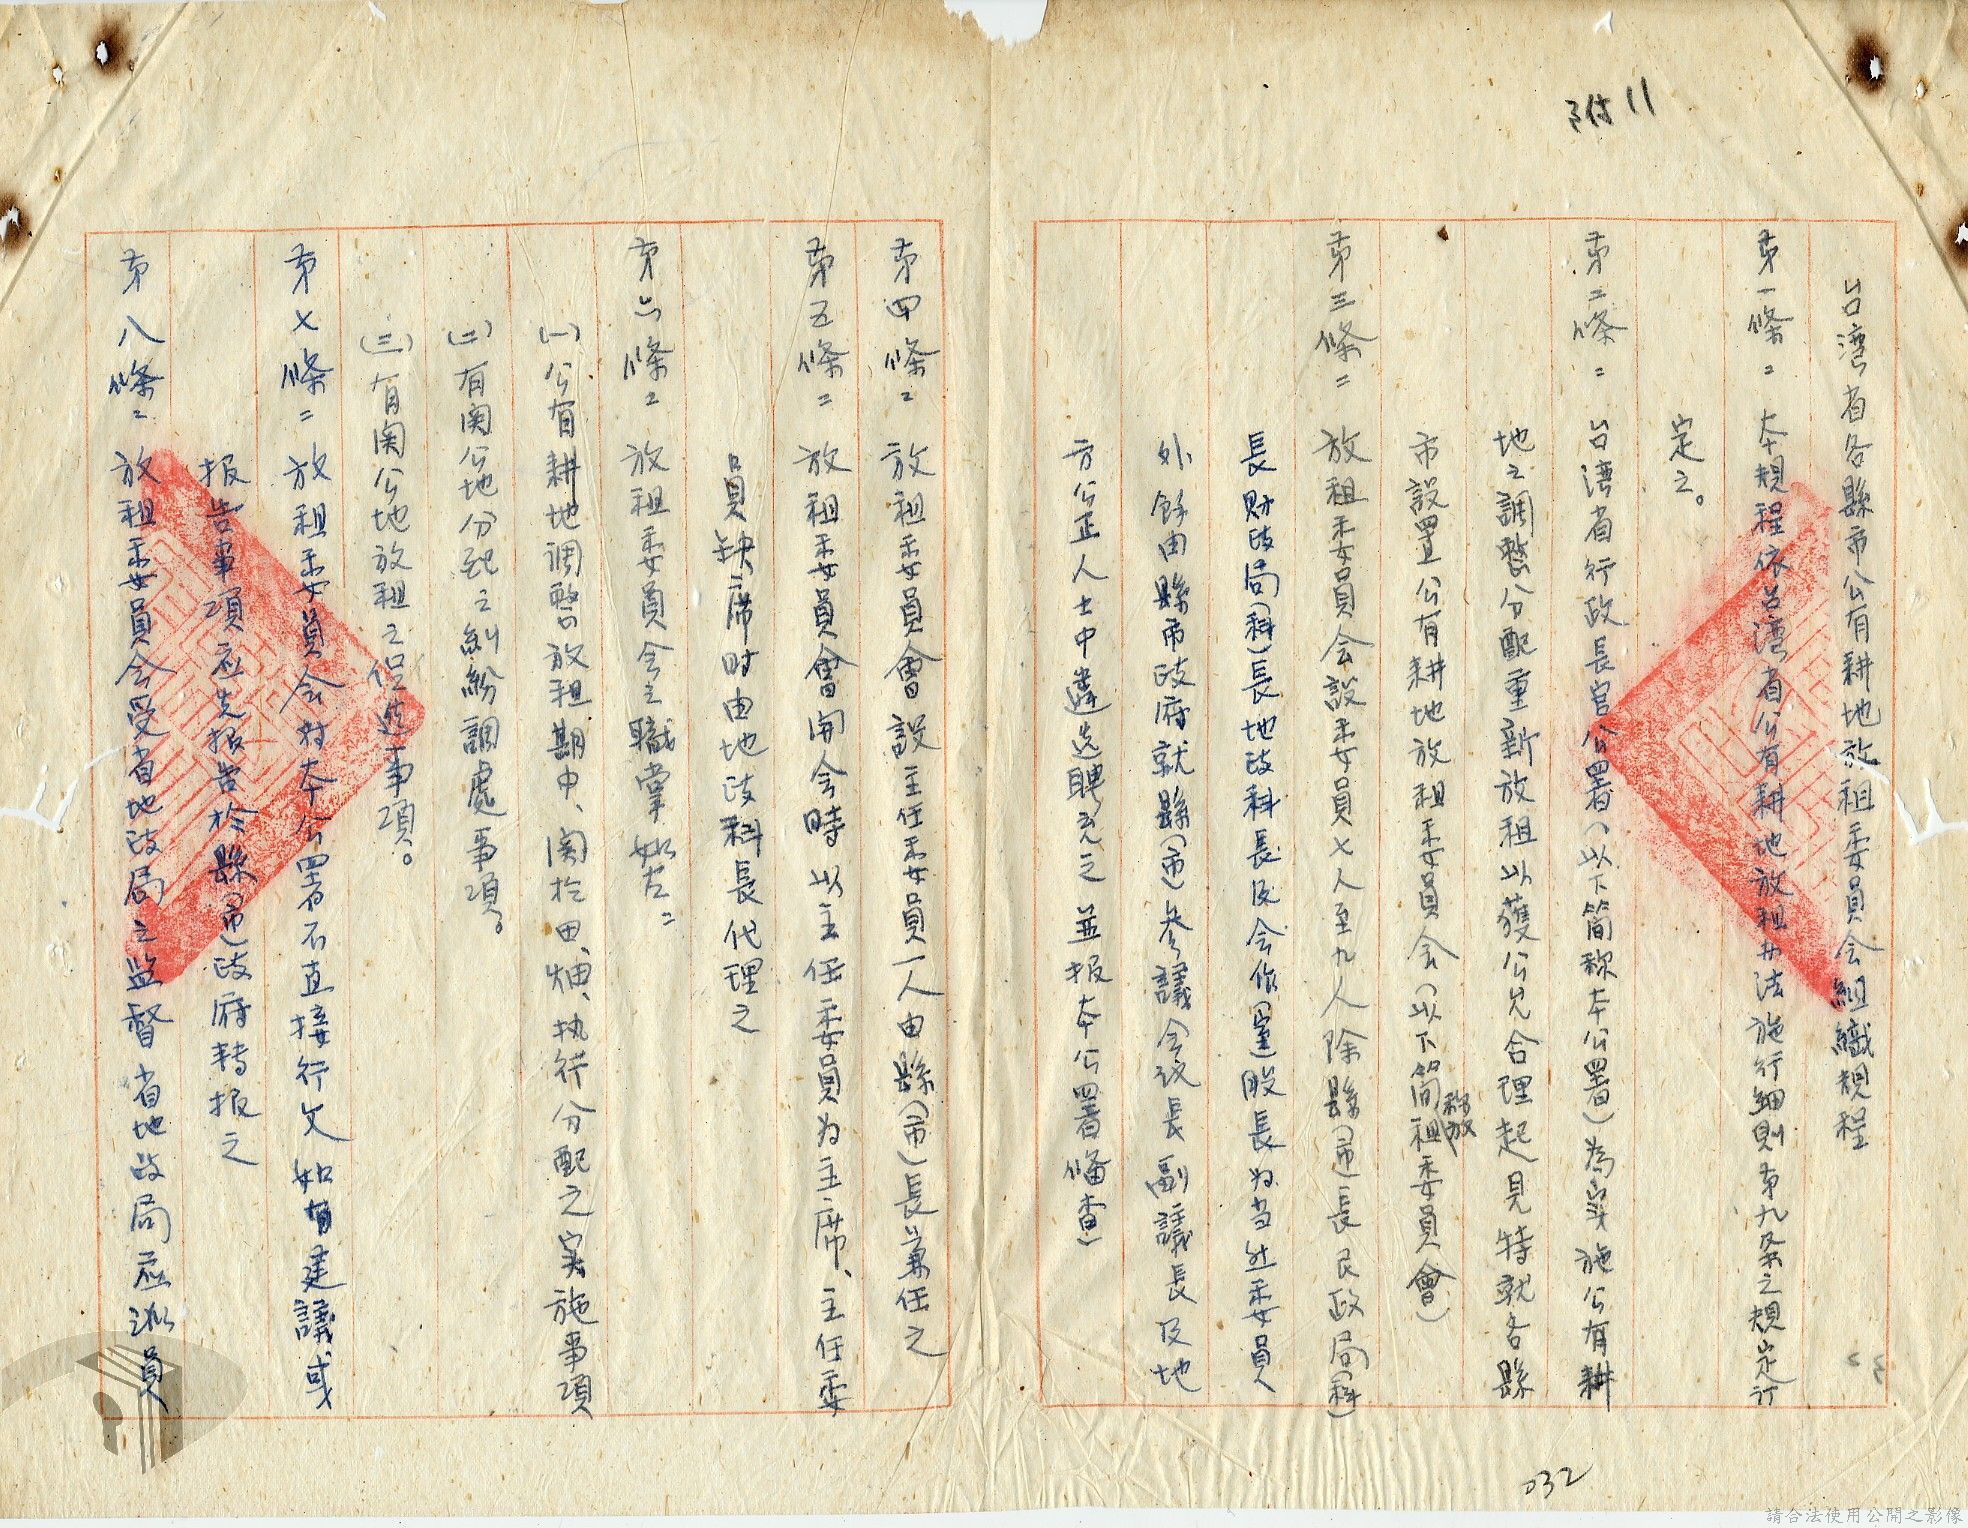 附11
台湾省各縣市公有耕地放租委員会組織規程
第一條：本規程依台湾省公有耕地放租办法施行細則第九条之規定订
定之。
第二條：台湾省行政長官公署（以下简称本公署）為实施公有耕
地之調整分配重新放租以獲公允合理起見特就各縣
市設置公有耕地放租委員会（以下簡称放租委員會）
第三條：放租委員会設委員七人至九人除縣（市）長民政局（科）
長财政局（科）長地政科長及会作（室）股長为当然委員
外餘由縣市政府就縣（市）参議会议長副議長及地
方公正人士中遴选聘充之並报本公署俻查）
第四條：放租委員會設主任委員一人由縣（市）長兼任之
第五條：放租委員會開会時以主任委員为主席、主任委
員缺席时由地政科長代理之
第六條：放租委員会之職掌如左：
(一)公有耕地调整放租期中、関於田、畑、执行分配之实施事項
(二)有関公地分配之糾紛調處事項。
(三)有関公地放租之促進事項。
第七條：放租委員会对本公署不直接行文如有建議或
报告事項应先报告於縣（市）政府转报之
第八條：放租委員会受省地政局之监督省地政局应派員
032
請合法使用公開之影像